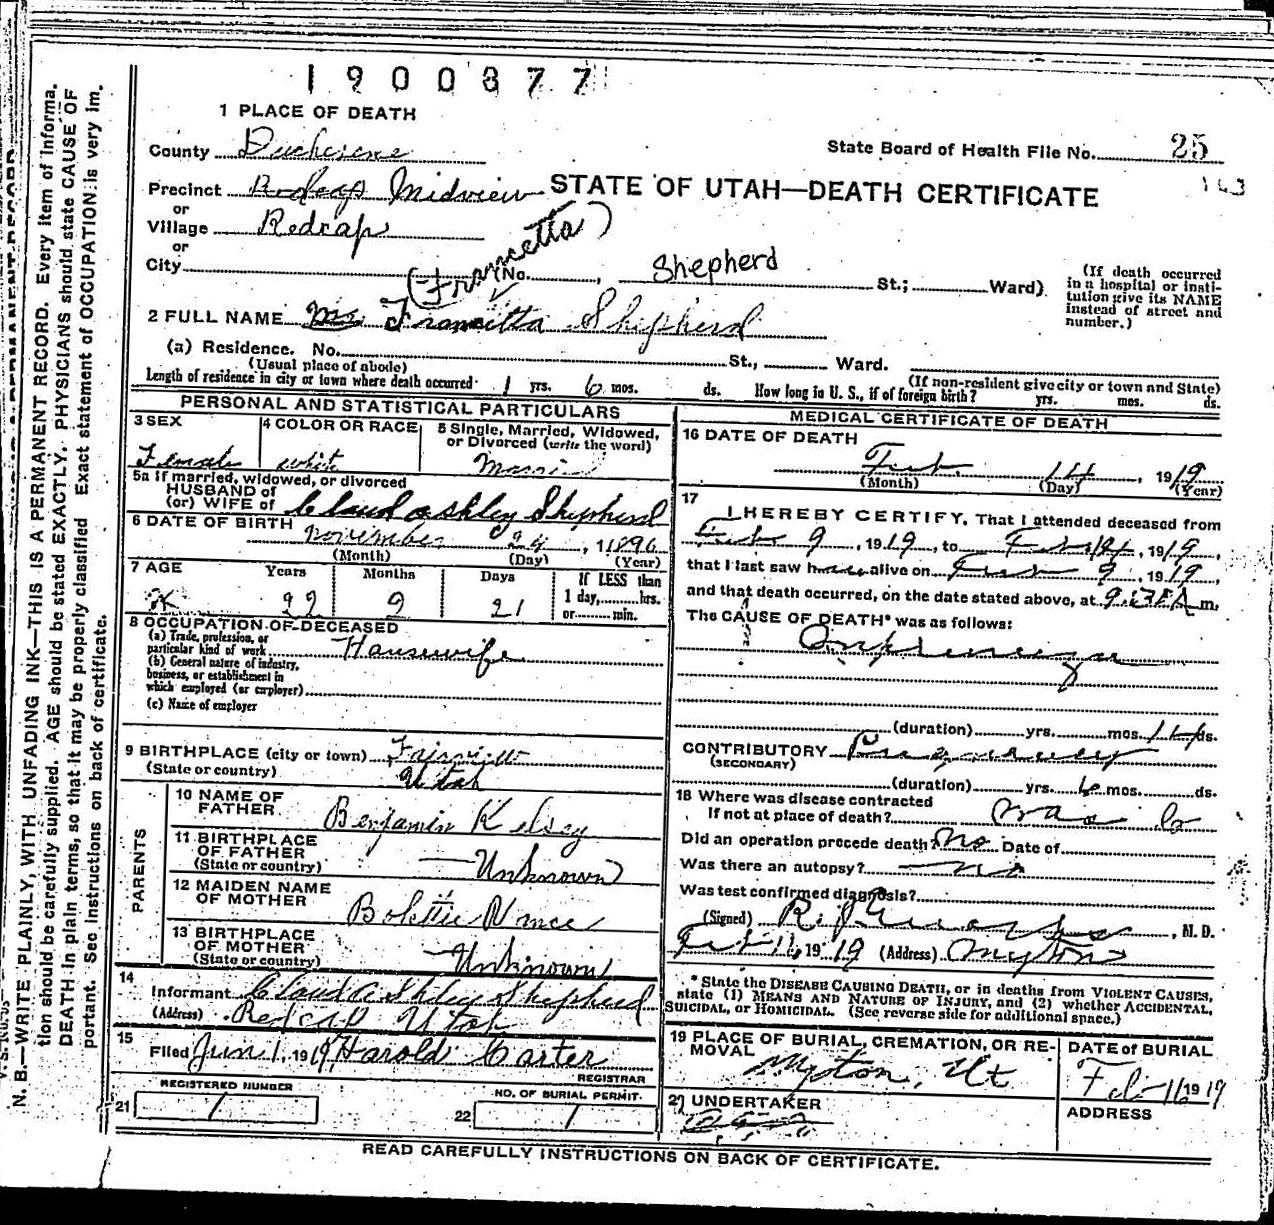 1900877
1 PLACE OF DEATH
County Duchesne
State Board of Health File No. 25
143
Precinct Redcap Midview
STATE OF UTAH—DEATH CERTIFICATE
or
Village Redcap
or
City (No. , Shepherd St.; Ward)
(Francetta)
(If death occurred in a hospital or institution give its NAME instead of street and number.)
2 FULL NAME Francitta Shipherd
(a) Residence. No. St., Ward.
(Usual place of abode) (If non-resident give city or town and State)
Length of residence in city or town where death occurred 1 yrs. 6 mos. ds. How long in U. S., if of foreign birth? yrs. mos. ds.
PERSONAL AND STATISTICAL PARTICULARS
3 SEX Female
4 COLOR OR RACE white
5 Single, Married, Widowed, or Divorced (write the word)
5a If married, widowed, or divorced
HUSBAND of
(or) WIFE of Claud Ashley Shipherd
6 DATE OF BIRTH November 24, 1896
(Month) (Day) (Year)
7 AGE Years Months Days If LESS than
22 9 21 1 day, hrs.
or min.
8 OCCUPATION OF DECEASED
(a) Trade, profession, or
particular kind of work Housewife
(b) General nature of industry,
business, or establishment in
which employed (or employer)
(c) Name of employer
9 BIRTHPLACE (city or town) Fairview
(State or country) Utah
PARENTS
10 NAME OF FATHER Benjamin Kelsey
11 BIRTHPLACE OF FATHER (State or country) Unknown
12 MAIDEN NAME OF MOTHER
13 BIRTHPLACE OF MOTHER (State or country) Unknown
14 Informant Claud Ashley Shipherd
(Address) Redcap Utah
15 Filed Jun 1, 1919 Harold Carter
REGISTRAR
REGISTERED NUMBER
21 1
NO. OF BURIAL PERMIT
22 1
MEDICAL CERTIFICATE OF DEATH
16 DATE OF DEATH
Feb. 14, 1919
(Month) (Day) (Year)
17 I HEREBY CERTIFY, That I attended deceased from
Feb 9, 1919, to Feb 14, 1919,
that I last saw h alive on Feb 9, 1919,
and that death occurred, on the date stated above, at m.
The CAUSE OF DEATH* was as follows:
Influenza
(duration) yrs. mos. ds.
CONTRIBUTORY Pregnancy
(SECONDARY)
(duration) yrs. 6 mos. ds.
18 Where was disease contracted
If not at place of death?
Did an operation precede death? No Date of
Was there an autopsy? no
Was test confirmed diagnosis?
(Signed) , M. D.
1919 (Address) Myton
*State the DISEASE CAUSING DEATH, or in deaths from VIOLENT CAUSES, state (1) MEANS AND NATURE OF INJURY, and (2) whether ACCIDENTAL, SUICIDAL, or HOMICIDAL. (See reverse side for additional space.)
19 PLACE OF BURIAL, CREMATION, OR REMOVAL Myton, Ut
DATE of BURIAL
Feb 16 1919
UNDERTAKER
ADDRESS
READ CAREFULLY INSTRUCTIONS ON BACK OF CERTIFICATE.
N. B.—WRITE PLAINLY, WITH UNFADING INK—THIS IS A PERMANENT RECORD. Every item of information should be carefully supplied. AGE should be stated EXACTLY. PHYSICIANS should state CAUSE OF DEATH in plain terms, so that it may be properly classified. Exact statement of OCCUPATION is very important. See instructions on back of certificate.